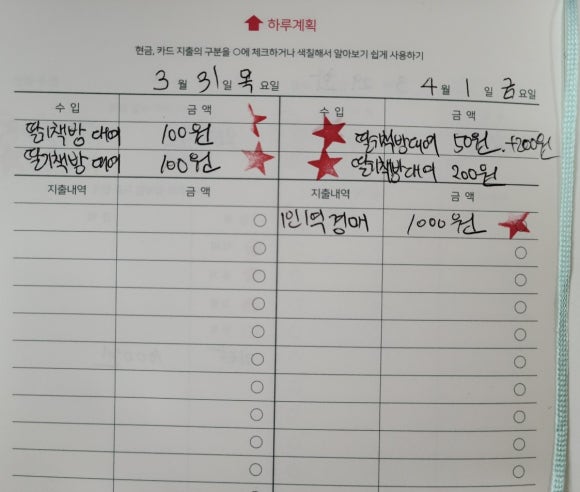 하루계획
현금, 카드 지출의 구분을 ○에 체크하거나 색칠해서 알아보기 쉽게 사용하기
3 월 31 일 목 요일 4 월 1 일 금 요일
수 입 금 액 수 입 금 액
딸기책방 대여 100원 딸기책방대여 50원 +200원
딸기책방 대여 100원 딸기책방대여 200원
지출내역 금 액 지출내역 금 액
1인1역 경매 1000원